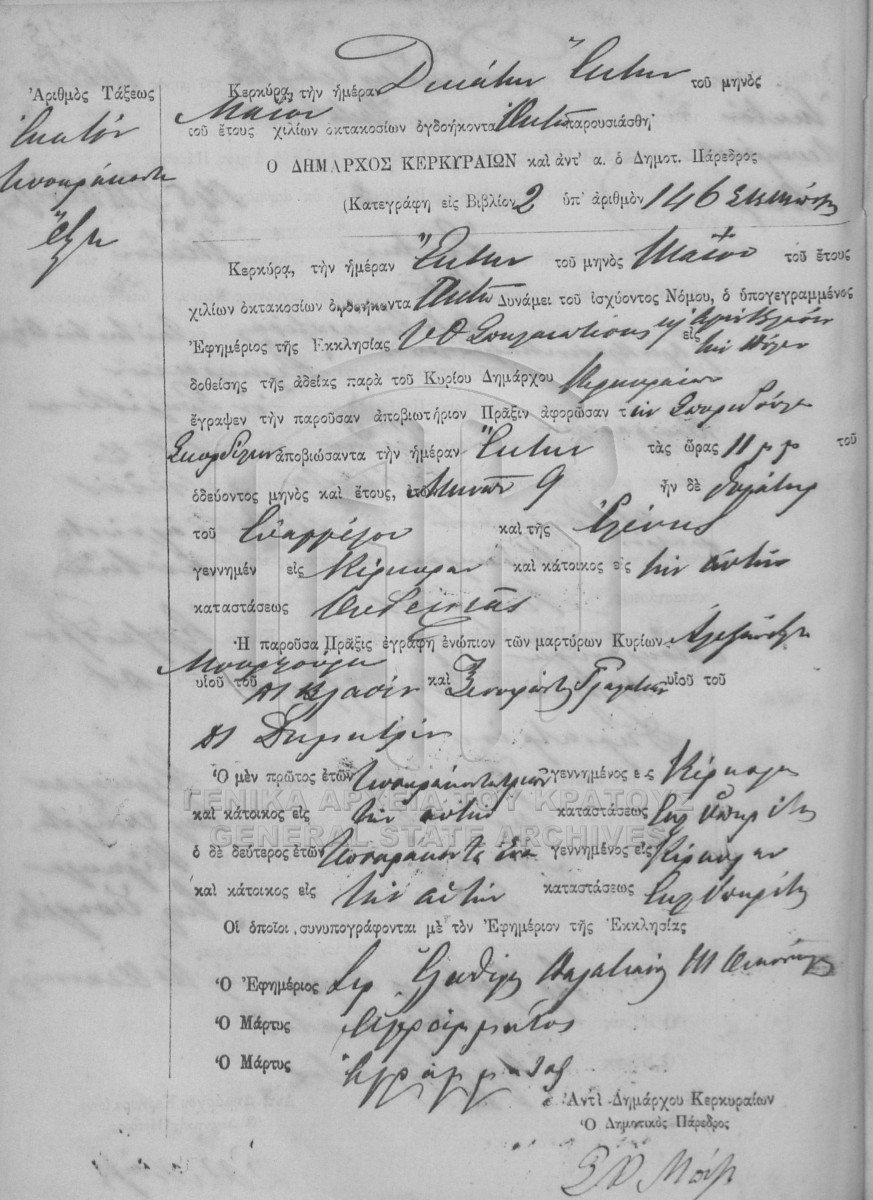 Ἀριθμὸς Τάξεως
Ἑκατόν
τεσσαράκοντα
ἕξη
Κερκύρα, τὴν ἡμέραν Δεκάτην Ἕκτην τοῦ μηνὸς
Μαΐου
τοῦ ἔτους χιλίων ὀκτακοσίων ὀγδοήκοντα Ὀκτὼ παρουσιάσθη
Ὁ ΔΗΜΑΡΧΟΣ ΚΕΡΚΥΡΑΙΩΝ καὶ ἀντ' α. ὁ Δημοτ. Πάρεδρος
(Κατεγράφη εἰς Βιβλίον 2 ὑπ' ἀριθμὸν 146
Κερκύρα, τὴν ἡμέραν Ἕκτην τοῦ μηνὸς Μαΐου τοῦ ἔτους
χιλίων ὀκτακοσίων ὀγδοήκοντα Ὀκτὼ Δυνάμει τοῦ ἰσχύοντος Νόμου, ὁ ὑπογεγραμμένος
Ἐφημέριος τῆς Ἐκκλησίας ΥΘ Σπηλαιωτίσσης εἰς
τὴν Πόλιν
δοθείσης τῆς ἀδείας παρὰ τοῦ Κυρίου Δημάρχου Κερκυραίων
ἔγραψεν τὴν παροῦσαν ἀποβιωτήριον Πρᾶξιν ἀφορῶσαν τὴν Σπυριδούλα
ἀποβιώσαντα τὴν ἡμέραν Ἕκτην τὰς ὥρας 11 μμ τοῦ
ὁδεύοντος μηνὸς καὶ ἔτους, ἐτῶν μηνῶν 9 ἦν δὲ θυγάτηρ
τοῦ Εὐαγγέλου καὶ τῆς Ἑλένης
γεννημέν εἰς Κέρκυραν καὶ κάτοικος εἰς τὴν αὐτήν
καταστάσεως Οὐδεμιᾶς
Ἡ παροῦσα Πρᾶξις ἐγράφη ἐνώπιον τῶν μαρτύρων Κυρίων Ἀλεξάνδρου
υἱοῦ τοῦ Βλασίου καὶ υἱοῦ τοῦ
Δημητρίου
Ὁ μὲν πρῶτος ἐτῶν τεσσαρακοντατριῶν γεννημένος εἰς Κέρκυρα
καὶ κάτοικος εἰς τὴν αὐτήν καταστάσεως Ἐκκλ Ὑπηρέτης
ὁ δὲ δεύτερος ἐτῶν τεσσαράκοντα γεννημένος εἰς Κέρκυραν
καὶ κάτοικος εἰς τὴν αὐτήν καταστάσεως Ἐκκλ Ὑπηρέτης
Οἱ ὁποῖοι συνυπογράφονται μὲ τὸν Ἐφημέριον τῆς Ἐκκλησίας
Ὁ Ἐφημέριος
Ὁ Μάρτυς Ἀγράμματος
Ὁ Μάρτυς Ἀγράμματος
Ἀντὶ Δημάρχου Κερκυραίων
Ὁ Δημοτικὸς Πάρεδρος
ΓΕΝΙΚΑ ΑΡΧΕΙΑ ΤΟΥ ΚΡΑΤΟΥΣ
GENERAL STATE ARCHIVES